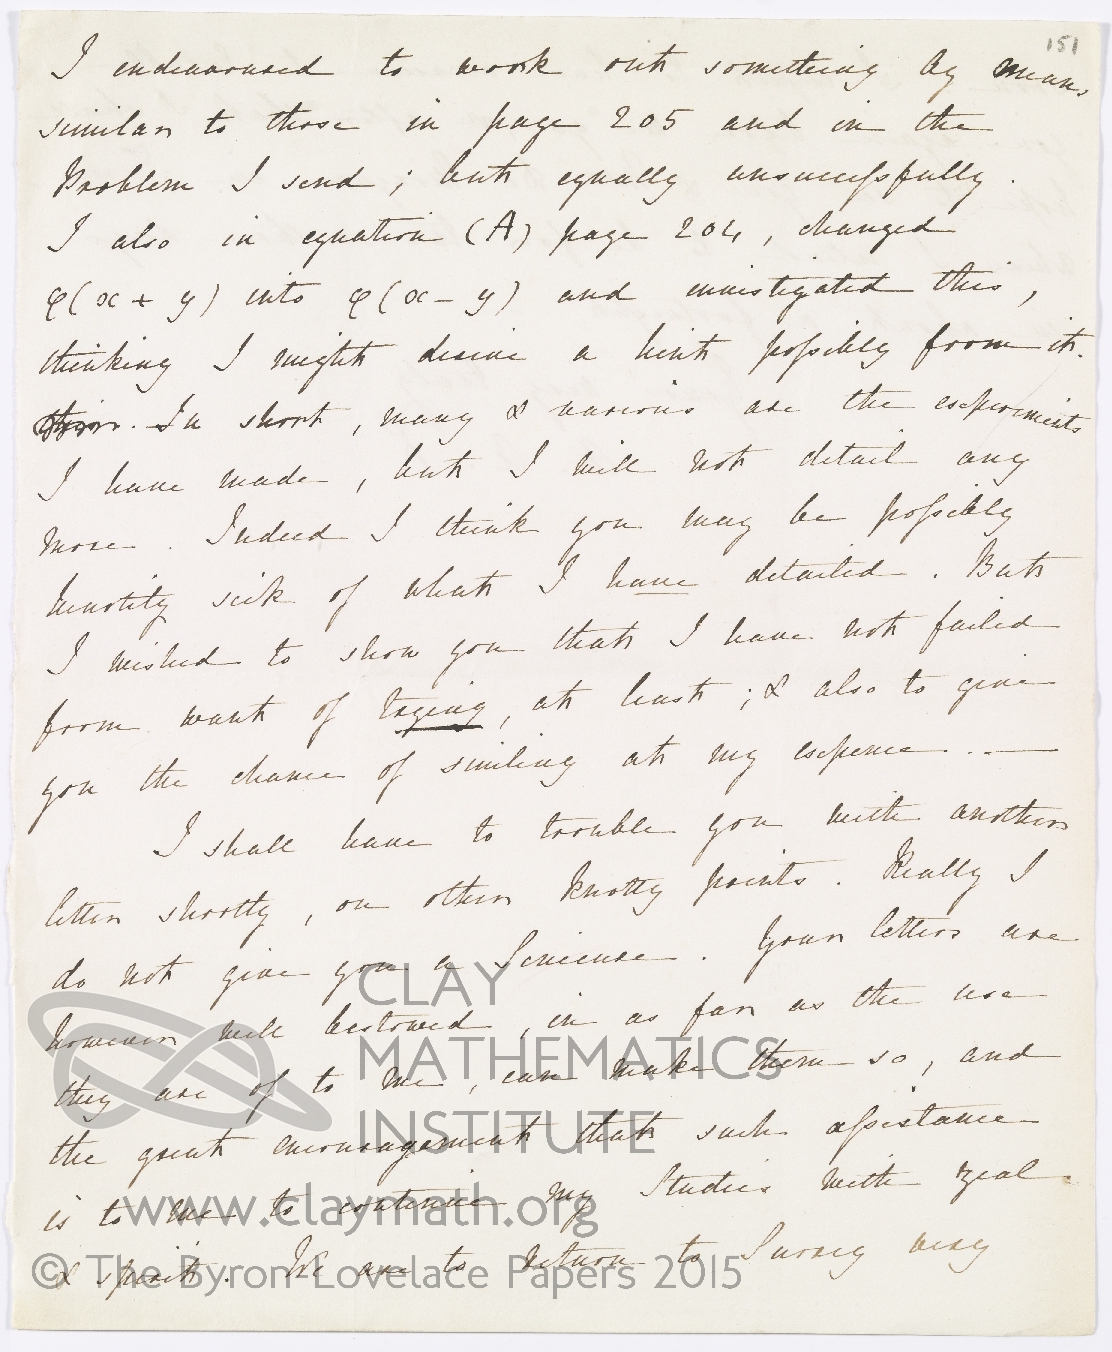 151
I endeavoured to work out something by means
similar to those in page 205 and in the
Problem I send; but equally unsuccessfully.
I also in equation (A) page 204, changed
φ(x + y) into φ(x - y) and investigated this,
thinking I might derive a hint possibly from it.
In short, many & various are the experiments
I have made, but I will not detail any
more. Indeed I think you may be possibly
heartily sick of what I have detailed. But
I wished to show you that I have not failed
from want of trying, at least; & also to give
you the chance of smiling at my expense. —
I shall have to trouble you with another
letter shortly, on other knotty points. Really I
do not give you a Sinecure. Your letters are
however well bestowed, in as far as the use
they are of to me, can make them so, and
the great encouragement that such assistance
is to me to continue my Studies with zeal
& spirit. We are to return to Surrey very
CLAY
MATHEMATICS
INSTITUTE
www.claymath.org
© The Byron Lovelace Papers 2015